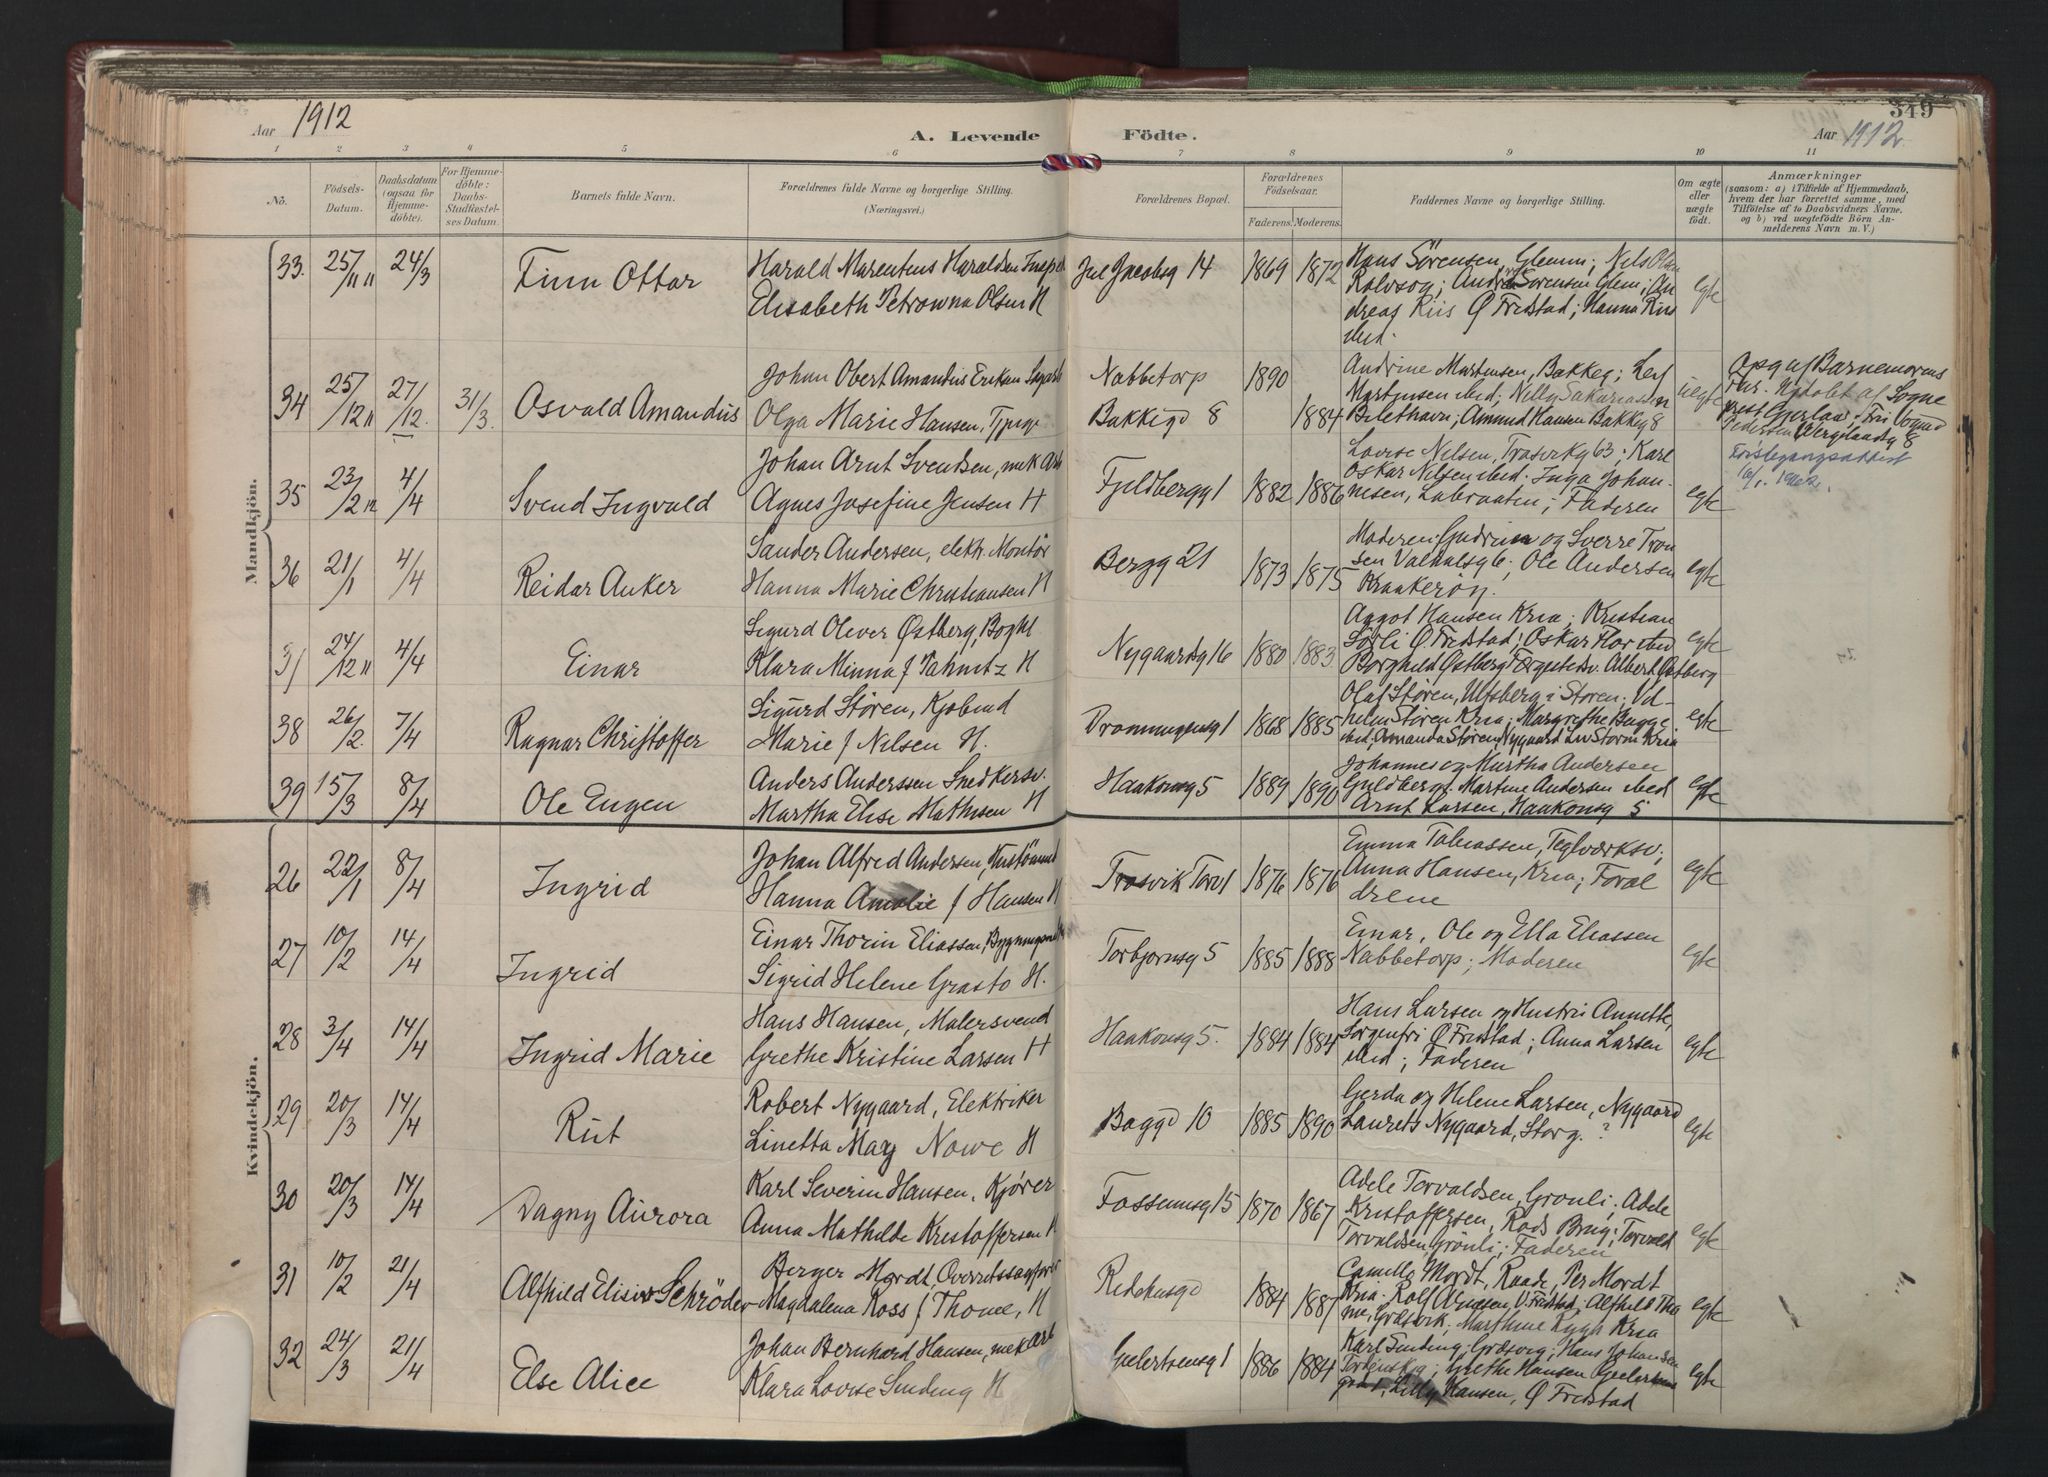 349
Aar 1912
A. Levende Födte.
Aar 1912.
1 2 3 4 5 6 7 8 9 10 11
No.
Födsels-
Datum.
Daabsdatum
(ogsaa for
Hjemme-
döbte).
For Hjemme-
döbte:
Daabs-
Stadfæstel-
ses Datum.
Barnets fulde Navn.
Forældrenes fulde Navne og borgerlige Stilling.
(Næringsvei.)
Forældrenes Bopæl.
Forældrenes
Födselsaar.
Faderens. Moderens.
Faddernes Navne og borgerlige Stilling.
Om ægte
eller
uægte
født.
Anmærkninger
(saasom: a) i Tilfælde af Hjemmedaab,
hvem der har forrettet samme, med
Tilföielse af to Daabsvidners Navne,
og b) ved uægtefödte Börn An-
melderens Navn m. V.)
Mandkjön.
33. 25/11 11 24/3 Finn Ottar
Harald Marentius Haraldsen
Elisabeth Petrowna Olsen H
Jul Jacobsg 14 1869 1872
Hans Sörensen, Glemm; Nils
Rolvsøg; Sörensen Glem; An
dreas Riis Ø Fredstad; Hanna Riis
ibid.
egte
34 25/12 11 27/12. 31/3. Osvald Amandus
Johan Obert Amandus Eriksen
Olga Marie Hansen,
Nabbetorp 1890
Bakkegd 8 1884
Andrine Martensen, Bakkeg; Leif
Martensen ibid; Nelly Sakariassen
Amund Hansen Bakkeg 8
uegte
Opg af Barnemorens
Hjdøbt af Sogne
prest
Pedersen 8
35 23/2 12 4/4 Svend Ingvald
Johan Arnt Svendsen, mek Arb
Agnes Josefine Jensen H
Fjeldbergg 1 1882 1886
Lovise Nilsen, Trosvikg 63; Karl
Oskar Nilsen ibid. Inga Johan-
nesen, Labraaten; Faderen
egte
36 21/1 4/4 Reidar Anker
Sander Andersen, elektr. Montör
Hanna Marie Christiansen H
Bergg 21 1873 1875
Moderen; Gudrun og Sverre Tron
sen Valhalsg 6; Ole Andersen
Kraakerøy.
egte
37 24/12 11 4/4 Einar
Sigurd Oliver Østberg, Bogh
Klara Minna f Tahnitz H
Nygaardsg 16 1880 1883
Aagot Hansen Kria; Kristian
Sørli Ø Fredstad; Oskar ibid
Borghild Østberg Færgestedsv. Albert Østberg
egte
38 26/2. 7/4 Ragnar Christoffer
Sigurd Stören, Kjøbmd
Marie f Nilsen H.
Dronningensg 1 1868 1885
Olaf Stören, Ulfsberg i Støren; Vil-
helm Støren Kria; Margrethe Bugge
ibid; Amanda Støren, Nygaard Kria
egte
39 15/3 8/4 Ole Eugen
Anders Anderssen Snedkersv.
Martha Elise Mathisen H
Haakonsg 5 1889 1890
Johannes og Martha Andersen
Guldbergs. Martine Andersen ibid
Arnt Larsen, Haakonsg 5
egte
Kvindekjön.
26 22/1 8/4 Ingrid
Johan Alfred Andersen,
Hanna Amalie f Hansen H
Trosvik Torv 1 1876 1876
Emma Tobiassen, Teglværksv;
Anna Hansen, Kria; Foræl
drene
egte
27 10/2 14/4 Ingrid
Einar Thorin Eliassen,
Sigrid Helene Grasto H.
Torbjornsg 5 1885 1888
Einar, Ole og Ella Eliassen
Nabbetorp; Moderen
egte
28 3/4 14/4 Ingrid Marie
Hans Hansen, Malersvend
Grethe Kristine Larsen H
Haakonsg 5. 1884 1884
Hans Larsen og Hustru Annette,
Sorgenfri Ø Fredstad; Anna Larsen
ibid; Faderen
egte
29 20/3 14/4 Rut
Robert Nygaard, Elektriker
Linetta May Nowe H
Baggd 10 1885 1890
Gerda og Helene Larsen, Nygaard
Laurits Nygaard, Storg. ?
egte
30 20/3 14/4 Dagny Aurora
Karl Severin Hansen, Kjører
Anna Mathilde Kristoffersen H.
Fossumsg 15 1870 1867
Adele Torvaldsen, Grönli; Adele
Kristoffersen, Rods Brug; Torvald
Torvaldsen, Grönli; Faderen
egte
31 10/2 21/4 Alfhild Elisiv Schröder
Berger Mordt, Overretssagfører
Magdalena Ross f Thome, H
1884 1887
Camilla Mordt, Raade, Per Mordt
Kria. Rolf V. Fredstad; Alfhild Tho
me, Græsvik; Marthine Rygh Kria
egte
32 24/3 21/4 Else Alice
Johan Bernhard Hansen, mek Arb
Klara Lovise Sinding H
Geelertsensg 1 1886 1884
Karl Sinding; Græsvig; Hans Johansen
Grethe Hansen
Lilly Hansen, Ø Fredstad
egte